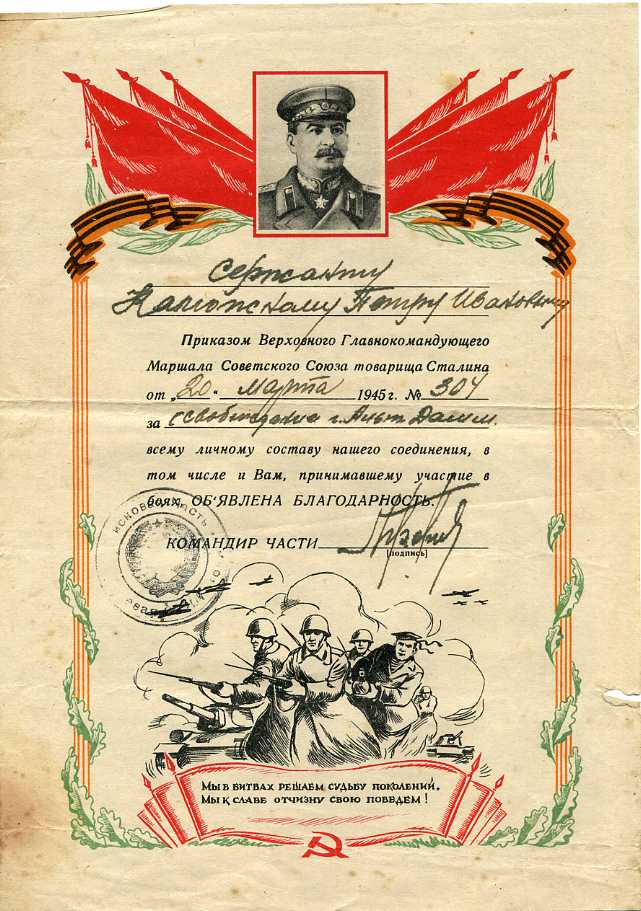 Сержанту
Петру Ивановичу
Приказом Верховного Главнокомандующего
Маршала Советского Союза товарища Сталина
от „20“ марта 1945 г. № 304
за освобождение г. Альт Дамм.
всему личному составу нашего соединения, в
том числе и Вам, принимавшему участие в
боях, ОБ'ЯВЛЕНА БЛАГОДАРНОСТЬ.
КОМАНДИР ЧАСТИ
(подпись)
МЫ В БИТВАХ РЕШАЕМ СУДЬБУ ПОКОЛЕНИЙ,
МЫ К СЛАВЕ ОТЧИЗНУ СВОЮ ПОВЕДЕМ!